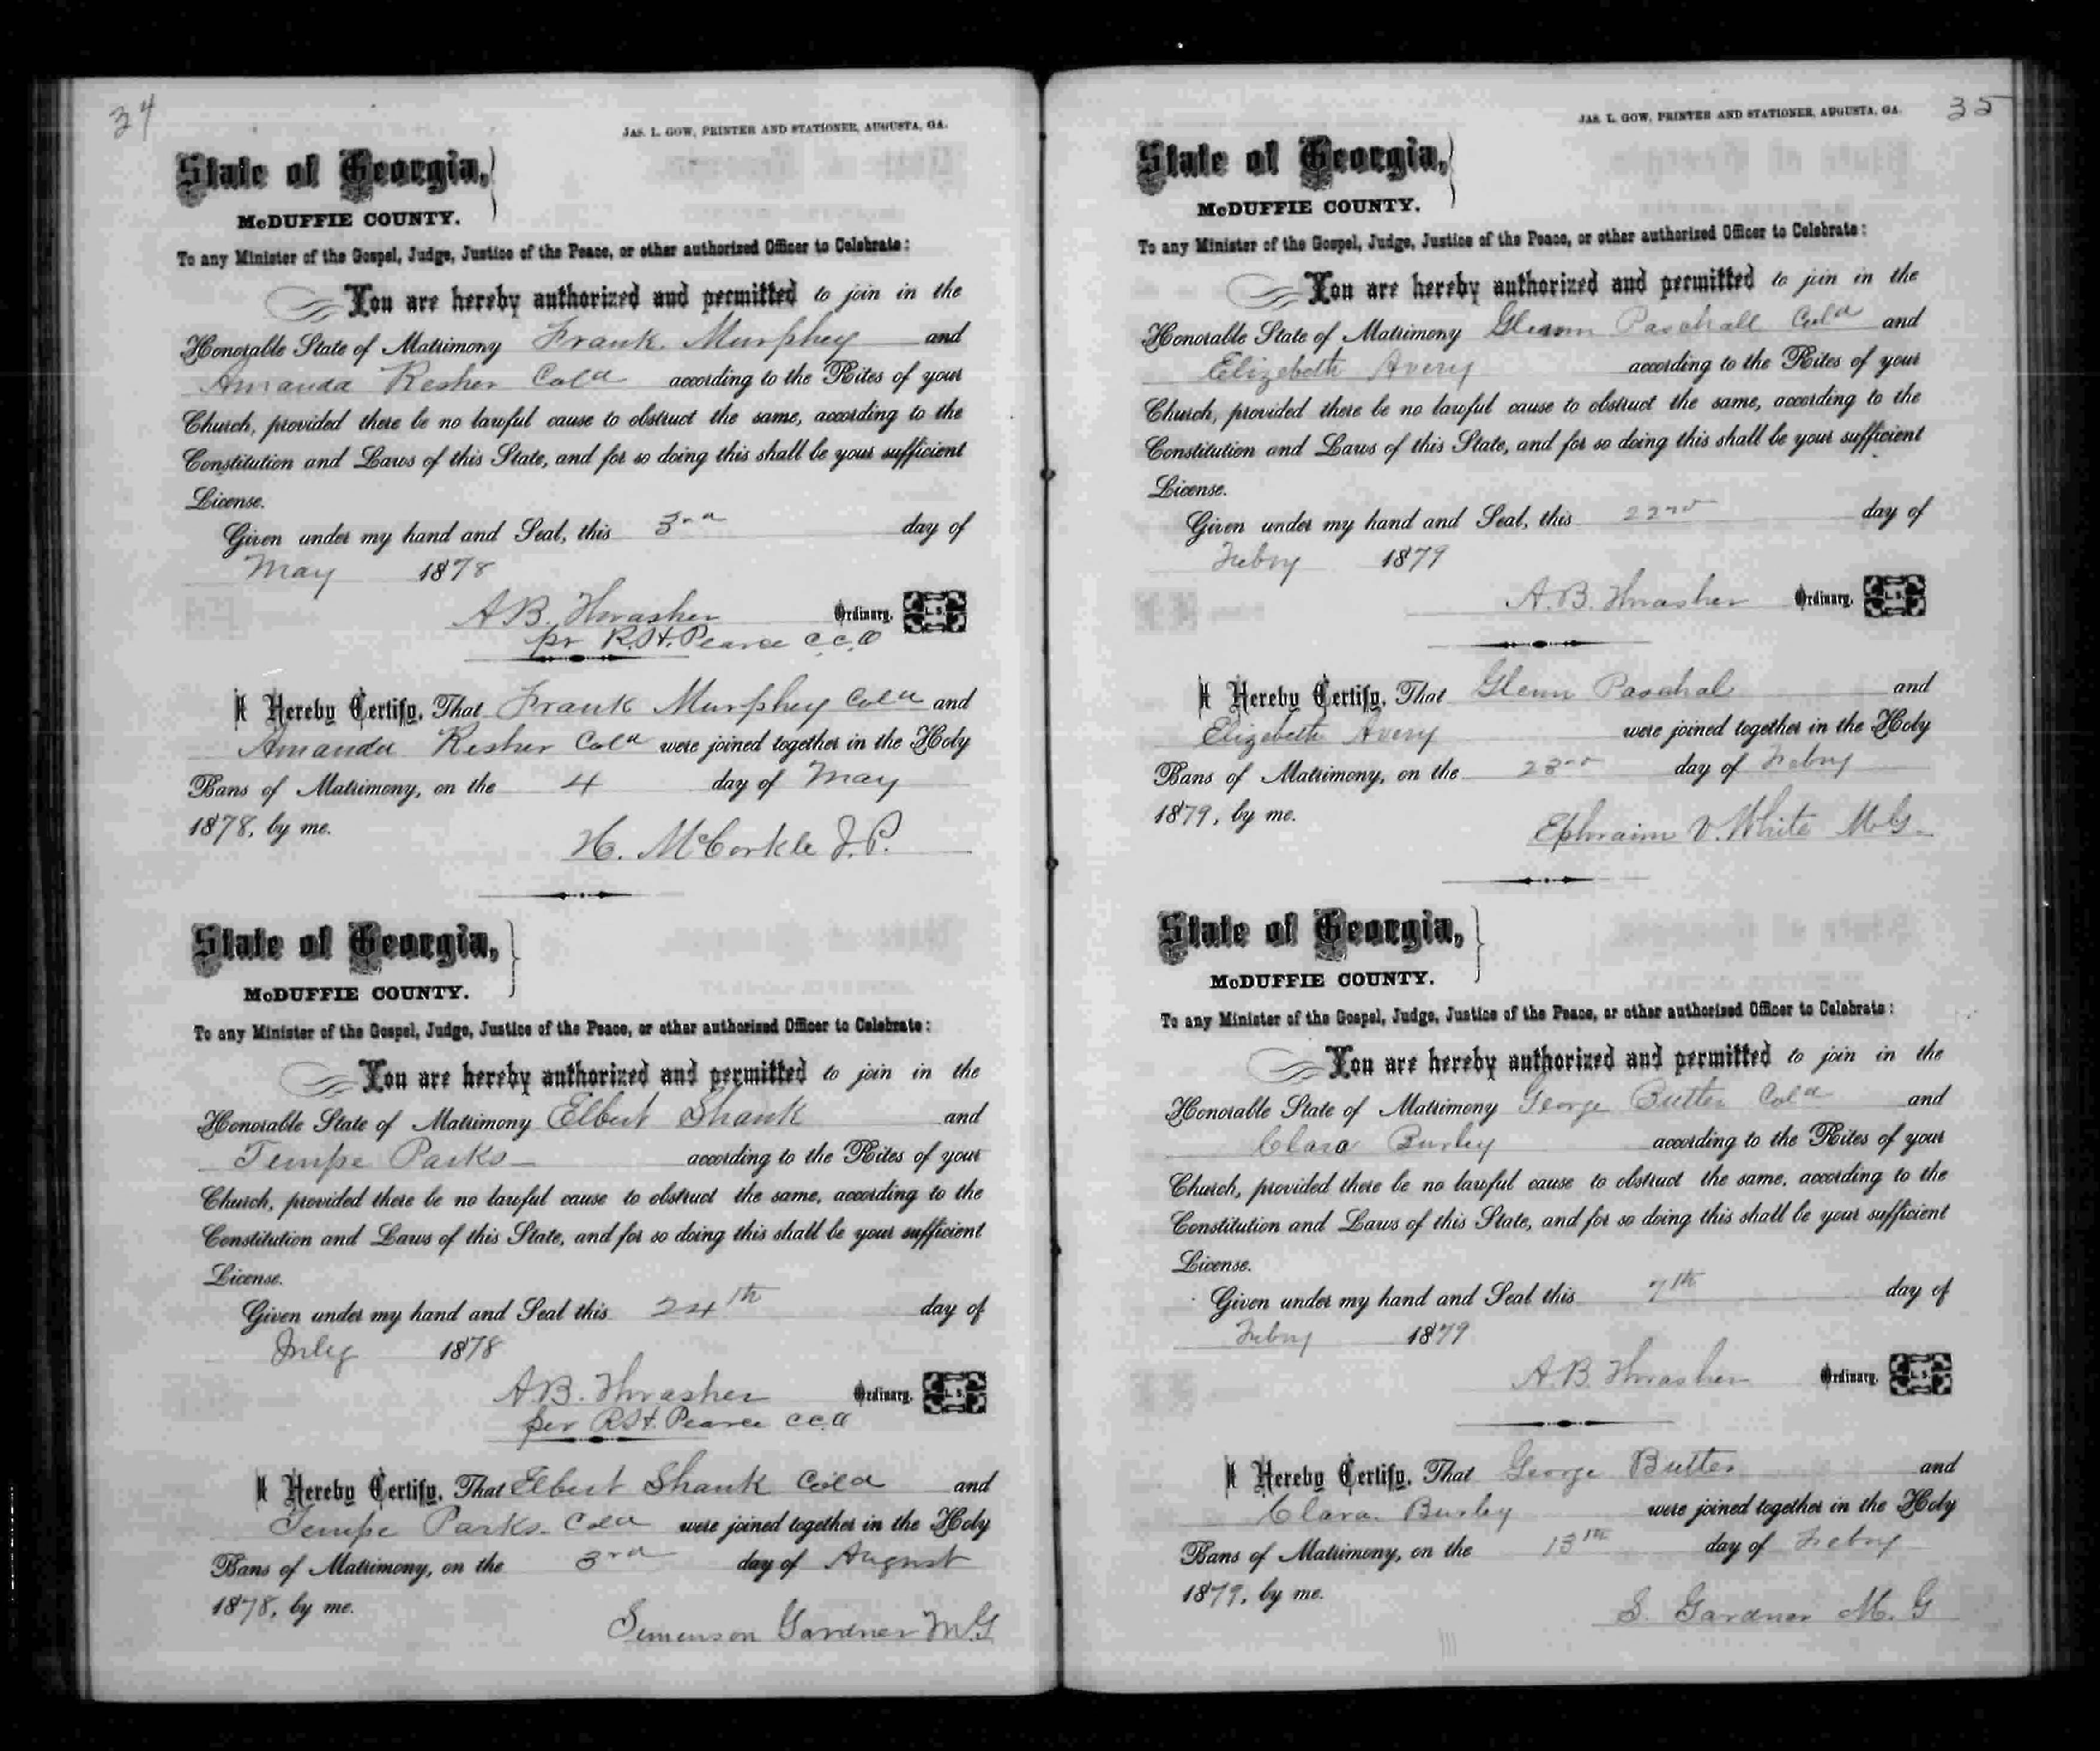 34
JAS. L. GOW, PRINTER AND STATIONER, AUGUSTA, GA.
State of Georgia,
McDUFFIE COUNTY.
To any Minister of the Gospel, Judge, Justice of the Peace, or other authorized Officer to Celebrate:
You are hereby authorized and permitted to join in the
Honorable State of Matrimony Frank Murphey and
Amanda Resher Cold according to the Rites of your
Church, provided there be no lawful cause to obstruct the same, according to the
Constitution and Laws of this State, and for so doing this shall be your sufficient
License.
Given under my hand and Seal, this 3rd day of
May 1878
A B. Thrasher Ordinary. L.S.
pr R.H. Pearce C.C.O
I Hereby Certify, That Frank Murphey Cold and
Amanda Resher Cold were joined together in the Holy
Bans of Matrimony, on the 4 day of May
1878, by me.
H. McCorkle J.P.
State of Georgia,
McDUFFIE COUNTY.
To any Minister of the Gospel, Judge, Justice of the Peace, or other authorized Officer to Celebrate:
You are hereby authorized and permitted to join in the
Honorable State of Matrimony Elbert Shank and
Tempe Parks according to the Rites of your
Church, provided there be no lawful cause to obstruct the same, according to the
Constitution and Laws of this State, and for so doing this shall be your sufficient
License.
Given under my hand and Seal this 24th day of
July 1878
A B. Thrasher Ordinary. L.S.
per R.H. Pearce C.C.O
I Hereby Certify, That Elbert Shank Cold and
Tempe Parks Cold were joined together in the Holy
Bans of Matrimony, on the 3rd day of August
1878, by me.
Simenson Gardner M.G
35
JAS. L. GOW, PRINTER AND STATIONER, AUGUSTA, GA.
State of Georgia,
McDUFFIE COUNTY.
To any Minister of the Gospel, Judge, Justice of the Peace, or other authorized Officer to Celebrate:
You are hereby authorized and permitted to join in the
Honorable State of Matrimony Glenn Paschall Cold and
Elizebeth Avery according to the Rites of your
Church, provided there be no lawful cause to obstruct the same, according to the
Constitution and Laws of this State, and for so doing this shall be your sufficient
License.
Given under my hand and Seal, this 22nd day of
Febry 1879
A. B. Thrasher Ordinary. L.S.
I Hereby Certify, That Glenn Paschal and
Elizebeth Avery were joined together in the Holy
Bans of Matrimony, on the 23rd day of Febry
1879, by me.
Ephraim V. White M.G.
State of Georgia,
McDUFFIE COUNTY.
To any Minister of the Gospel, Judge, Justice of the Peace, or other authorized Officer to Celebrate:
You are hereby authorized and permitted to join in the
Honorable State of Matrimony George Butler Cold and
Clara Burley according to the Rites of your
Church, provided there be no lawful cause to obstruct the same, according to the
Constitution and Laws of this State, and for so doing this shall be your sufficient
License.
Given under my hand and Seal this 7th day of
Febry 1879
A. B. Thrasher Ordinary. L.S.
I Hereby Certify, That George Butler and
Clara Burley were joined together in the Holy
Bans of Matrimony, on the 13th day of Febry
1879, by me.
S. Gardner M. G